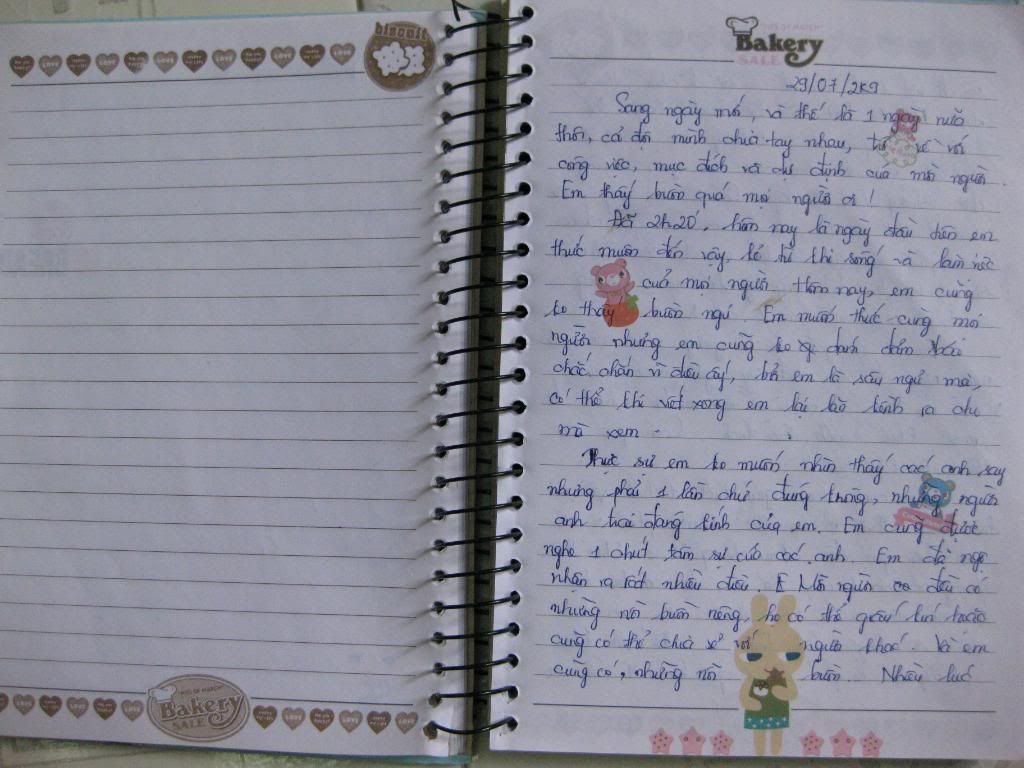 biscuit
LOVE LOVE LOVE
Bakery
SALE
Bakery
SALE
29/07/2k9
Sang ngày mới, và thế là 1 ngày nữa
thôi, cả đội mình chia tay nhau, về với
công việc, mục đích và dự định của mỗi người.
Em thấy buồn quá mọi người ơi!
Đã 2h20', hôm nay là ngày đầu tiên em
thức muộn đến vậy, kể từ khi sống và làm việc
của mọi người. Hôm nay, em cũng
ko thấy buồn ngủ. Em muốn thức cùng mọi
người nhưng em cũng ko dám
chắc chắn vì điều ấy, bởi em là sâu ngủ mà,
có thể khi viết xong em lại ra cho
mà xem.
Thực sự em ko muốn nhìn thấy các anh say
nhưng phải 1 lần chứ đúng không, những người
anh trai đáng kính của em. Em cũng được
nghe 1 chút tâm sự của các anh. Em đã
nhận ra rất nhiều điều. Mỗi người đều có
những nỗi buồn riêng, họ có thể giấu kín hoặc
cũng có thể chia sẻ với người khác. Và em
cũng có, những nỗi buồn. Nhiều lúc